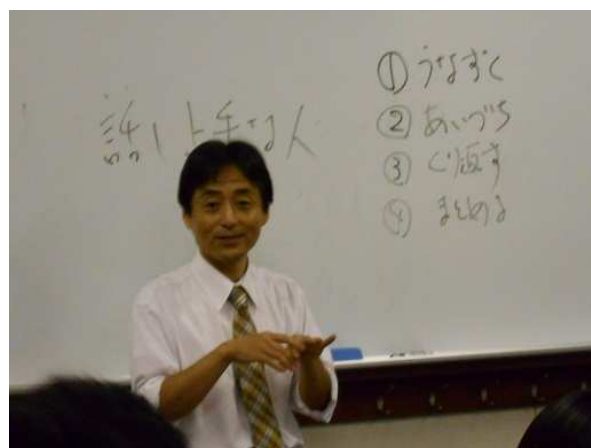 話し上手な人
① うなずく
② あいづち
③ くり返す
④ まとめる